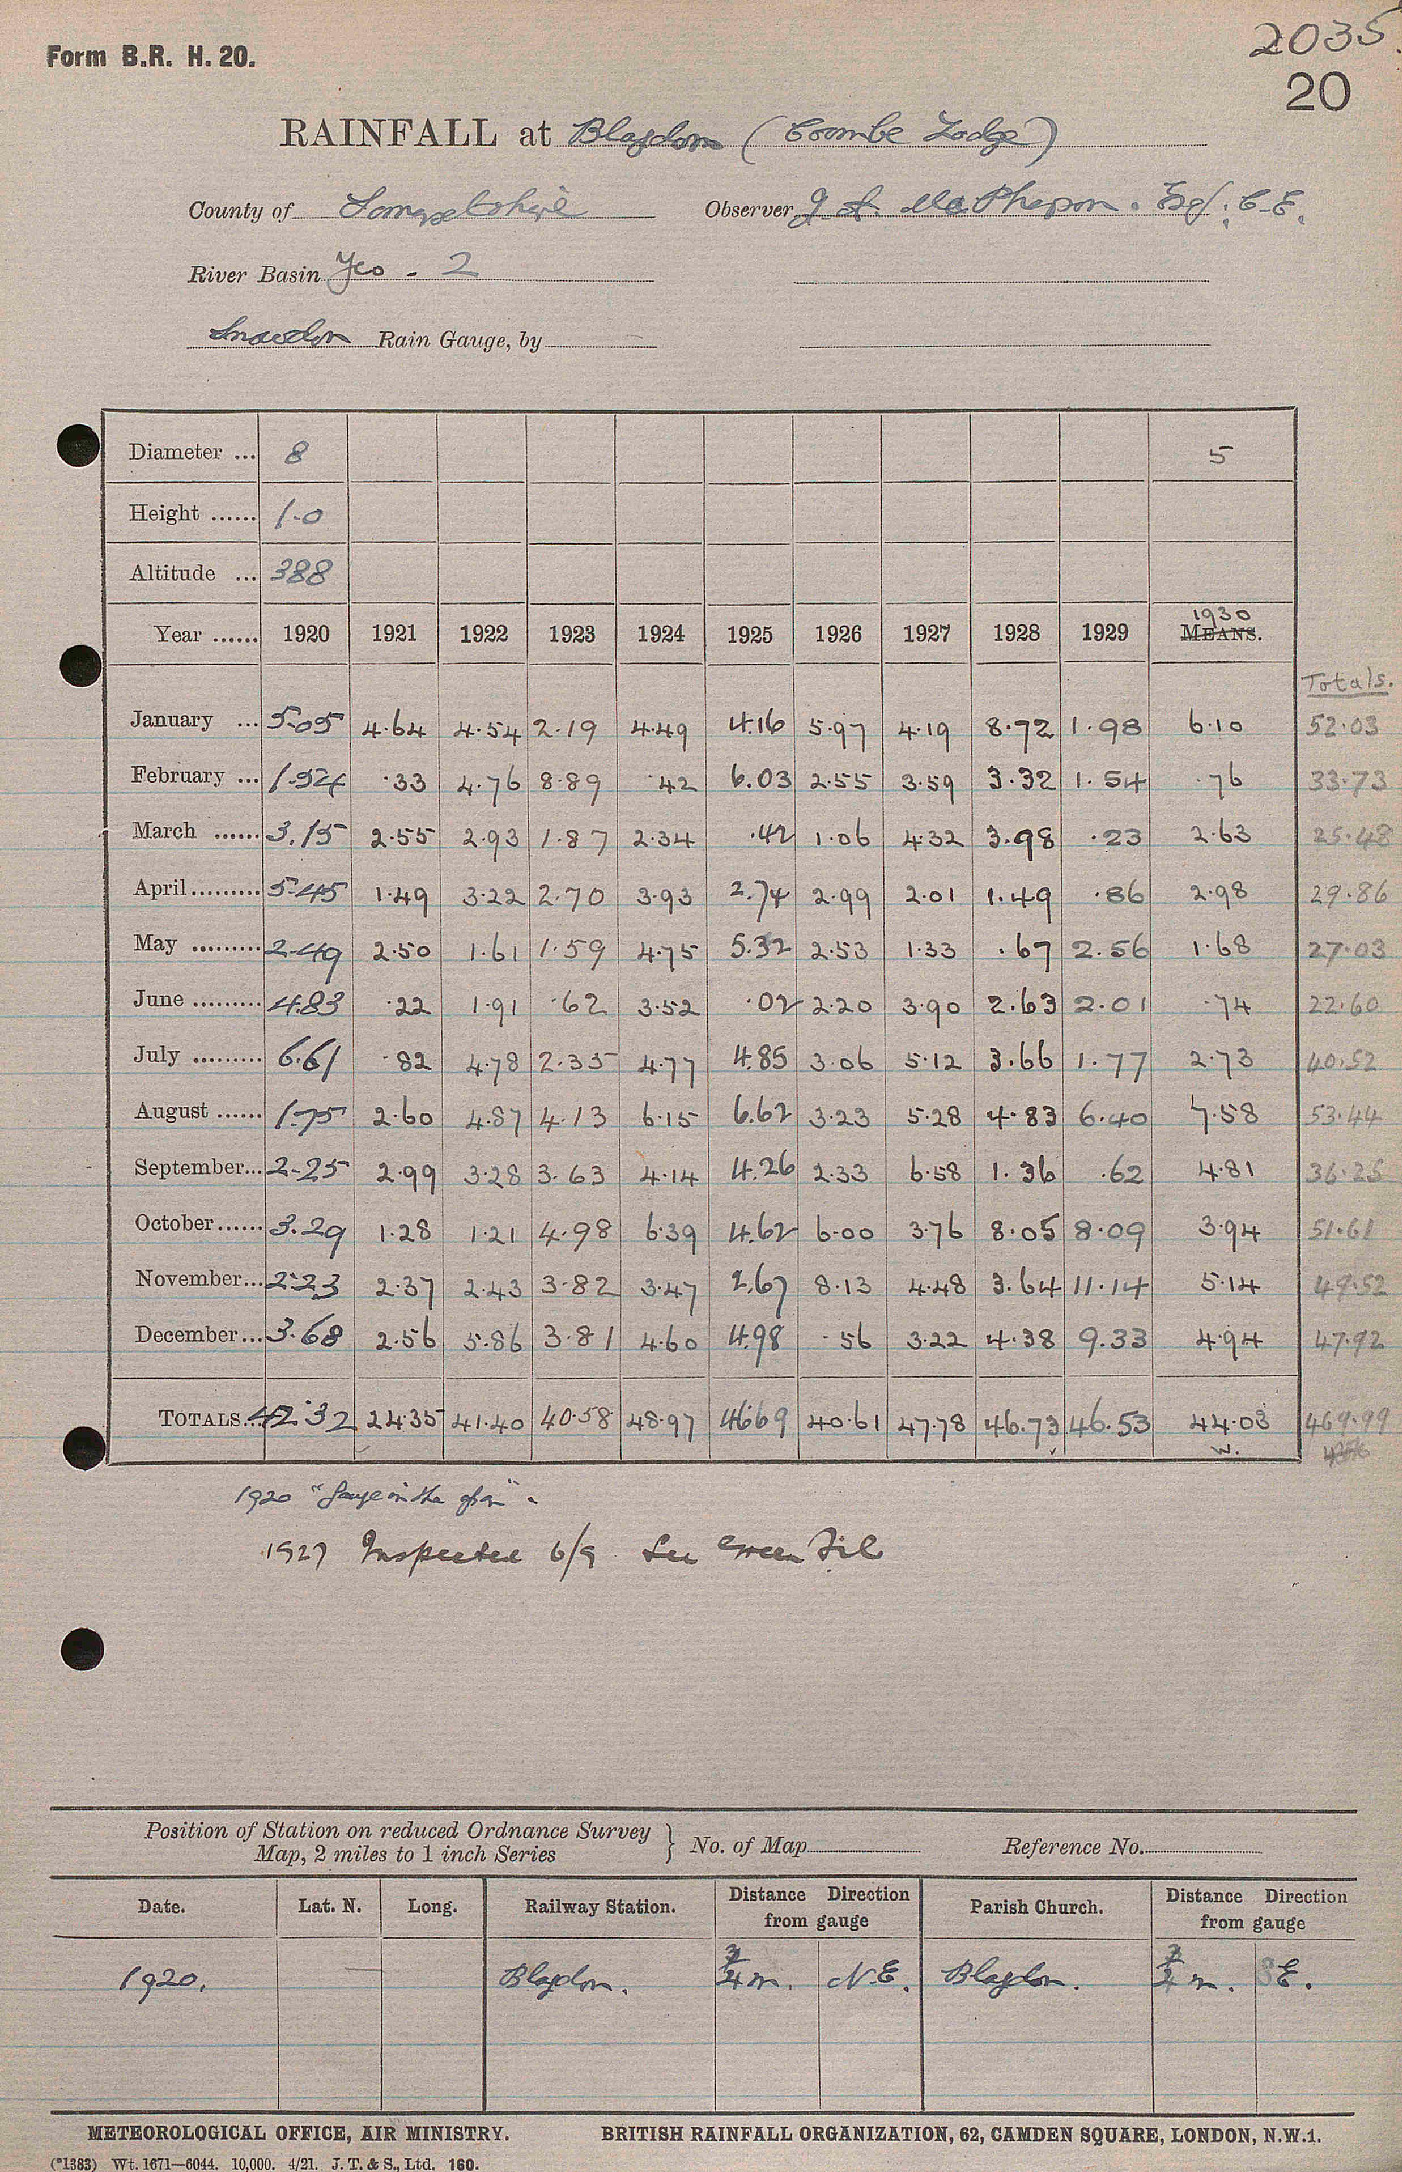 2035.
Form B.R. H. 20.
20
RAINFALL at Blagdon (Coombe Lodge)
County of Somersetshire Observer J. A. McPherson. Esq; C.E.
River Basin Yeo - 2
Snowdon Rain Gauge, by
Diameter ... 8 5
Height ...... 1-0
Altitude ... 388
Year ...... 1920 1921 1922 1923 1924 1925 1926 1927 1928 1929 1930 MEANS.
Totals.
January ... 5.05 4.64 4.54 2.19 4.49 4.16 5.97 4.19 8.72 1.98 6.10 52.03
February ... 1.54 .33 4.76 8.89 .42 6.03 2.55 3.59 3.32 1.54 .76 33.73
March ...... 3.15 2.55 2.93 1.87 2.34 .42 1.06 4.32 3.98 .23 2.63 25.48
April......... 5.45 1.49 3.22 2.70 3.93 2.74 2.99 2.01 1.49 .86 2.98 29.86
May ......... 2.49 2.50 1.61 1.59 4.75 5.32 2.53 1.33 .67 2.56 1.68 27.03
June ......... 4.83 .22 1.91 .62 3.52 .02 2.20 3.90 2.63 2.01 .74 22.60
July ......... 6.61 .82 4.78 2.35 4.77 4.85 3.06 5.12 3.66 1.77 2.73 40.52
August ...... 1.75 2.60 4.87 4.13 6.15 6.62 3.23 5.28 4.83 6.40 7.58 53.44
September... 2.25 2.99 3.28 3.63 4.14 4.26 2.33 6.58 1.36 .62 4.81 36.25
October...... 3.29 1.28 1.21 4.98 6.39 4.62 6.00 3.76 8.05 8.09 3.94 51.61
November... 2.23 2.37 2.43 3.82 3.47 2.67 8.13 4.48 3.64 11.14 5.14 49.52
December... 3.68 2.56 5.86 3.81 4.60 4.98 .56 3.22 4.38 9.33 4.94 47.92
TOTALS... 42.32 24.35 41.40 40.58 48.97 46.69 40.61 47.78 46.73 46.53 44.03 469.99
w.
1920 "Gauge on the
1927 Inspected 6/9. See Green File
Position of Station on reduced Ordnance Survey
Map, 2 miles to 1 inch Series } No. of Map Reference No.
Date. Lat. N. Long. Railway Station. Distance Direction from gauge Parish Church. Distance Direction from gauge
1920. — Blagdon. 3/4 m. N.E. Blagdon. 3/4 m. SE.
METEOROLOGICAL OFFICE, AIR MINISTRY. BRITISH RAINFALL ORGANIZATION, 62, CAMDEN SQUARE, LONDON, N.W.1.
(*1383) Wt. 1671—6044. 10,000. 4/21. J. T. & S., Ltd. 160.